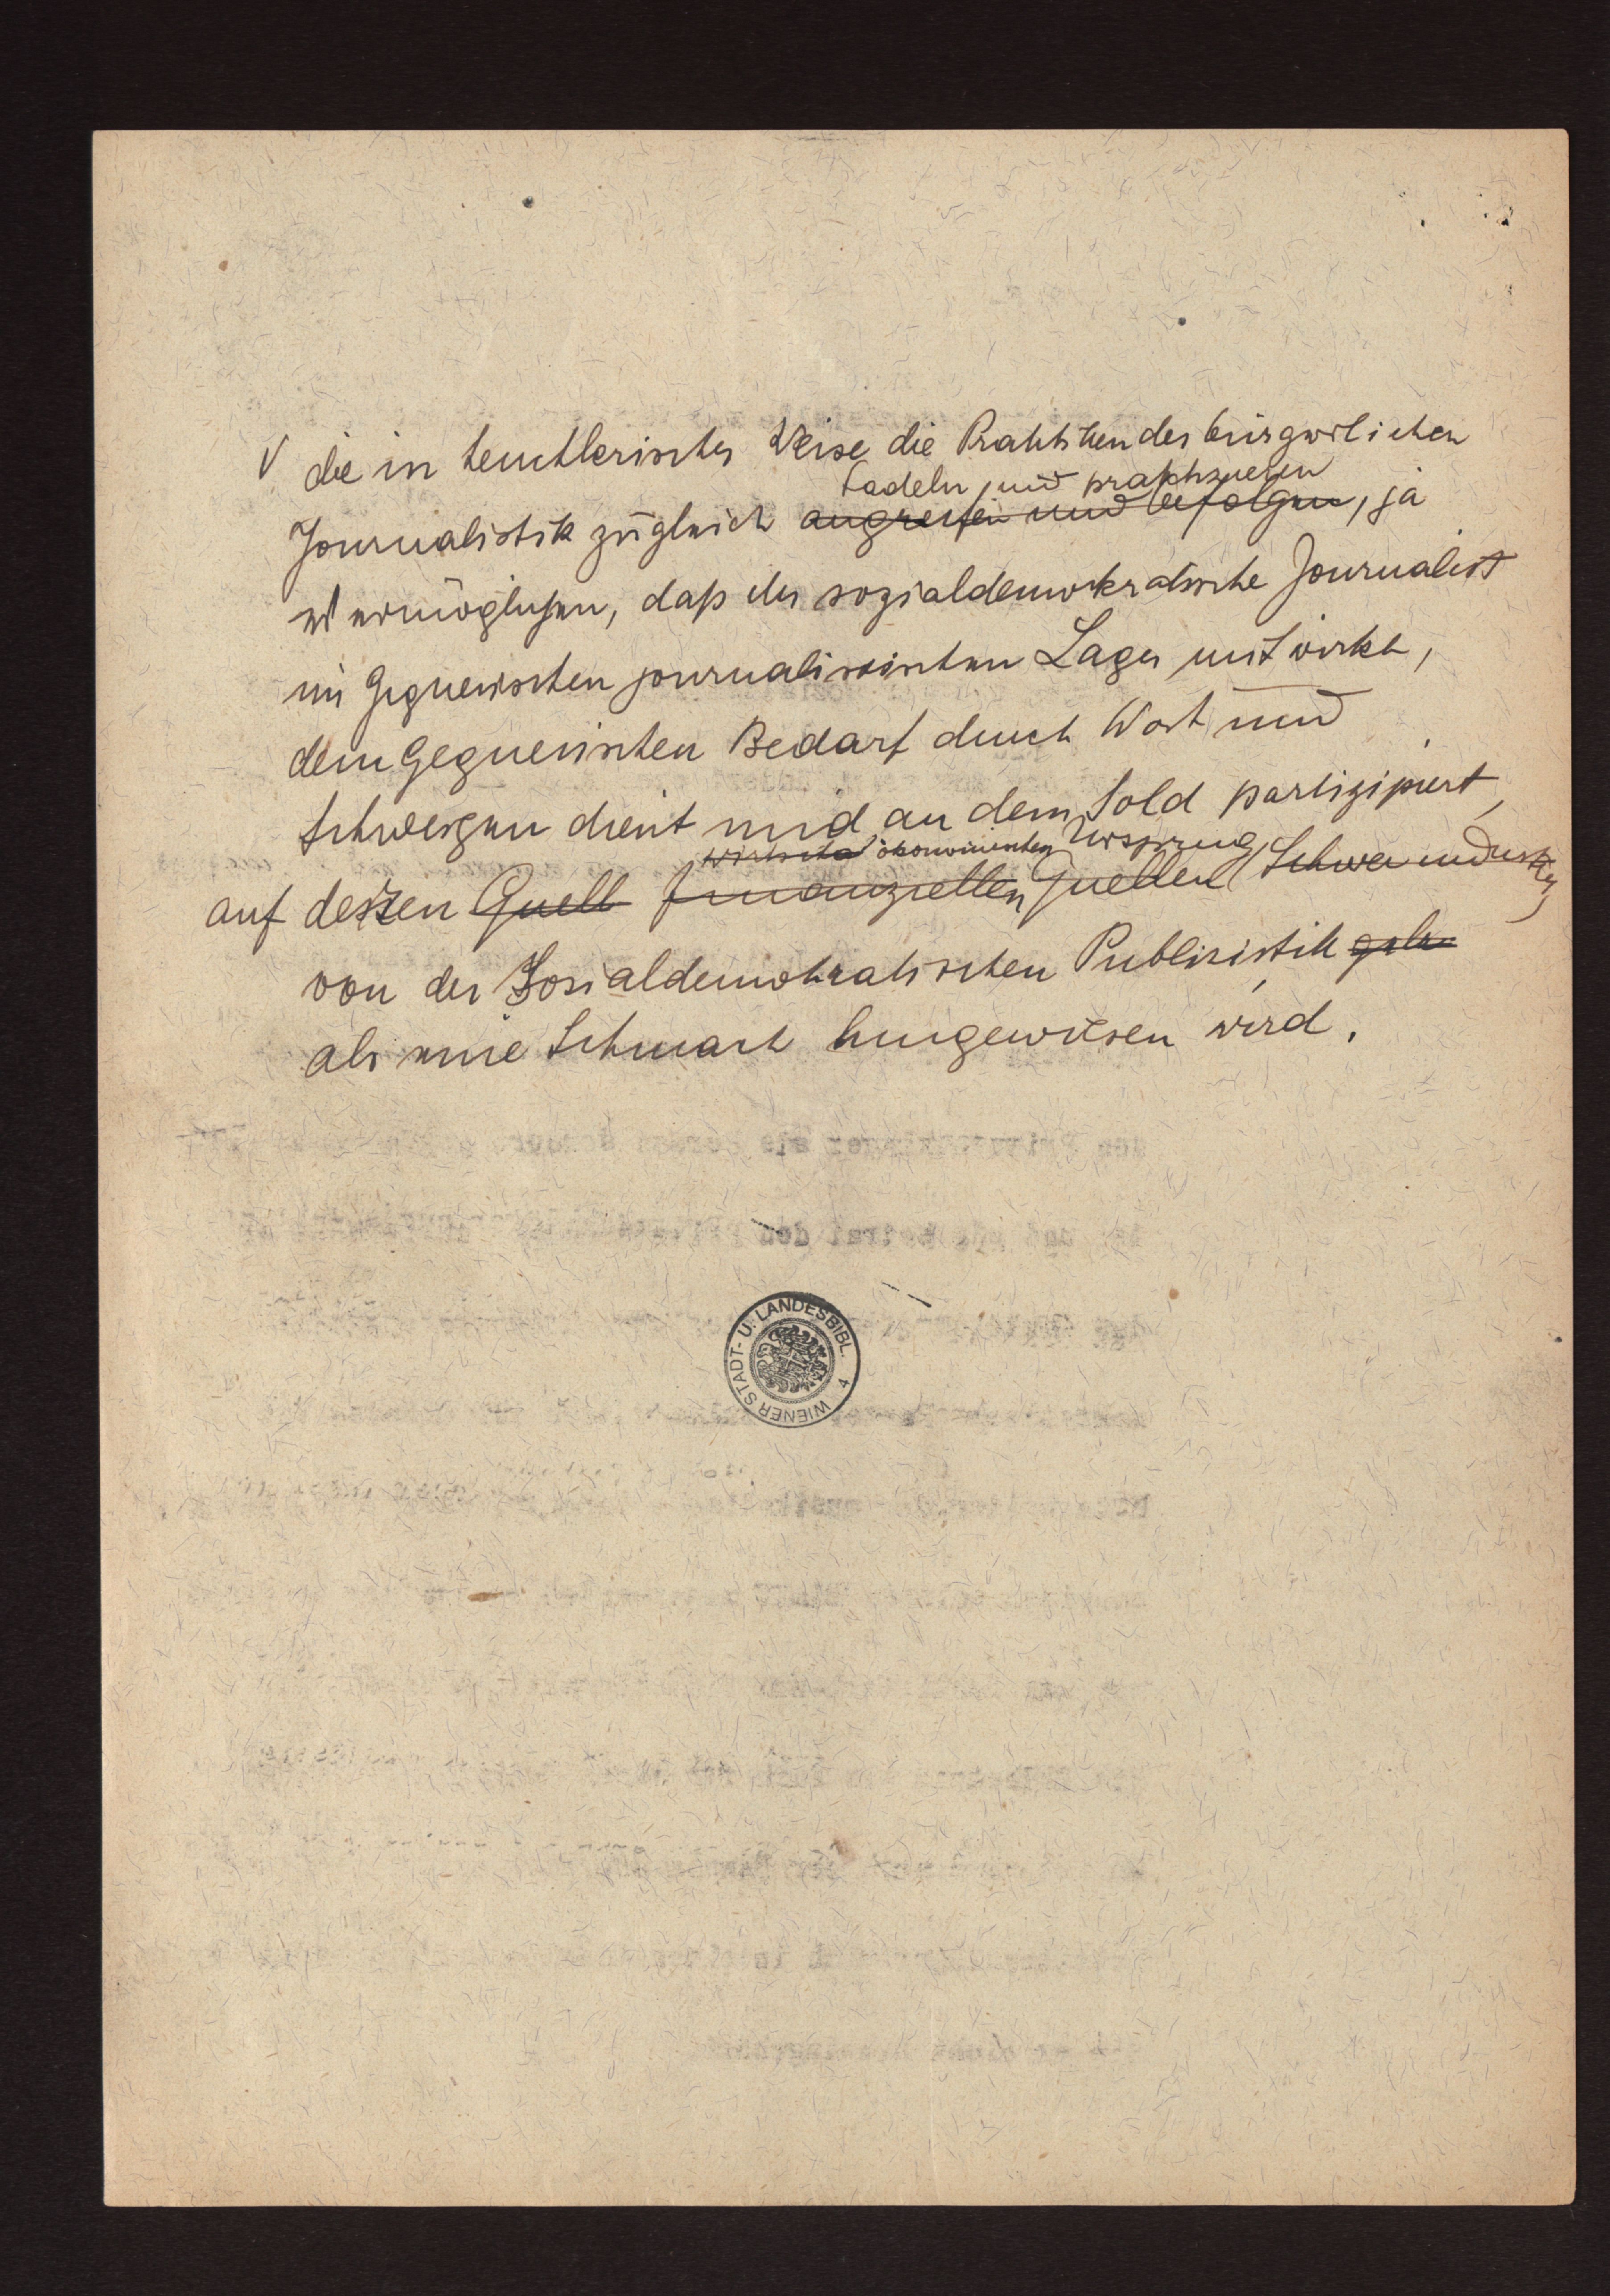 V die in heuchlerischer Weise die Praktiken der bürgerlichen
tadeln und praktizieren
Journalistik zugleich angreifen und befolgen, ja
es ermöglichen, daß der sozialdemokratische Journalist
im gegnerischen journalistischen Lager mitwirkt,
dem gegnerischen Bedarf durch Wort und
Schweigen dient und an dem Sold partizipiert,
wirtscha ökonomischen Ursprung
auf dessen Quell finanziellen Quellen (Schwerindustrie)
von der Sozialdemokratischen Publizistik
als eine Schmach hingewiesen wird.
WIENER STADT- U. LANDESBIBL. 4